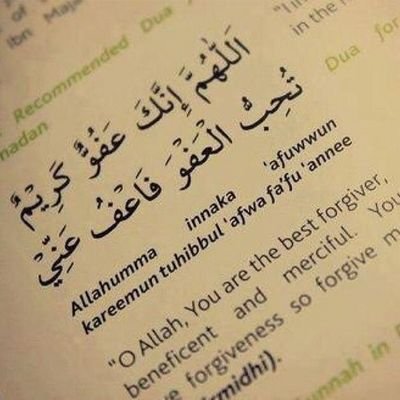 of
Ibn Maja
"I in
in the
Recommended Dua
madan
Dua for
اَللّٰهُمَّ إِنَّكَ عَفُوٌّ كَرِيْمٌ
تُحِبُّ الْعَفْوَ فَاعْفُ عَنِّيْ
Allahumma innaka 'afuwwun
kareemun tuhibbul 'afwa fa'fu 'annee
"O Allah, You are the best forgiver,
beneficent and merciful. You
forgiveness so forgive m
rmidhi).
unnah in